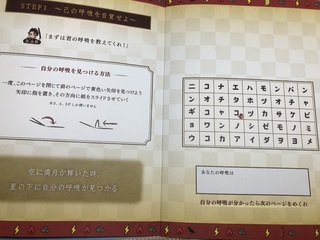 STEP1 ～己の呼吸を自覚せよ～
「まずは君の呼吸を教えてくれ!」
自分の呼吸を見つける方法
一度、このページを閉じて前のページで黄色い矢印を見つけよう
矢印に指を置き、その方向に紙をスライドさせていく
空に満月が輝いた時、
星の下に自分の呼吸が見つかる
ニコナエハモンパン
ンオチタホツオチャ
ギコャコヅカサケビ
ョワンノシゼモノヨ
ウコカカアイダヨメ
あなたの呼吸は
自分の呼吸が分かったら次のページをめくれ